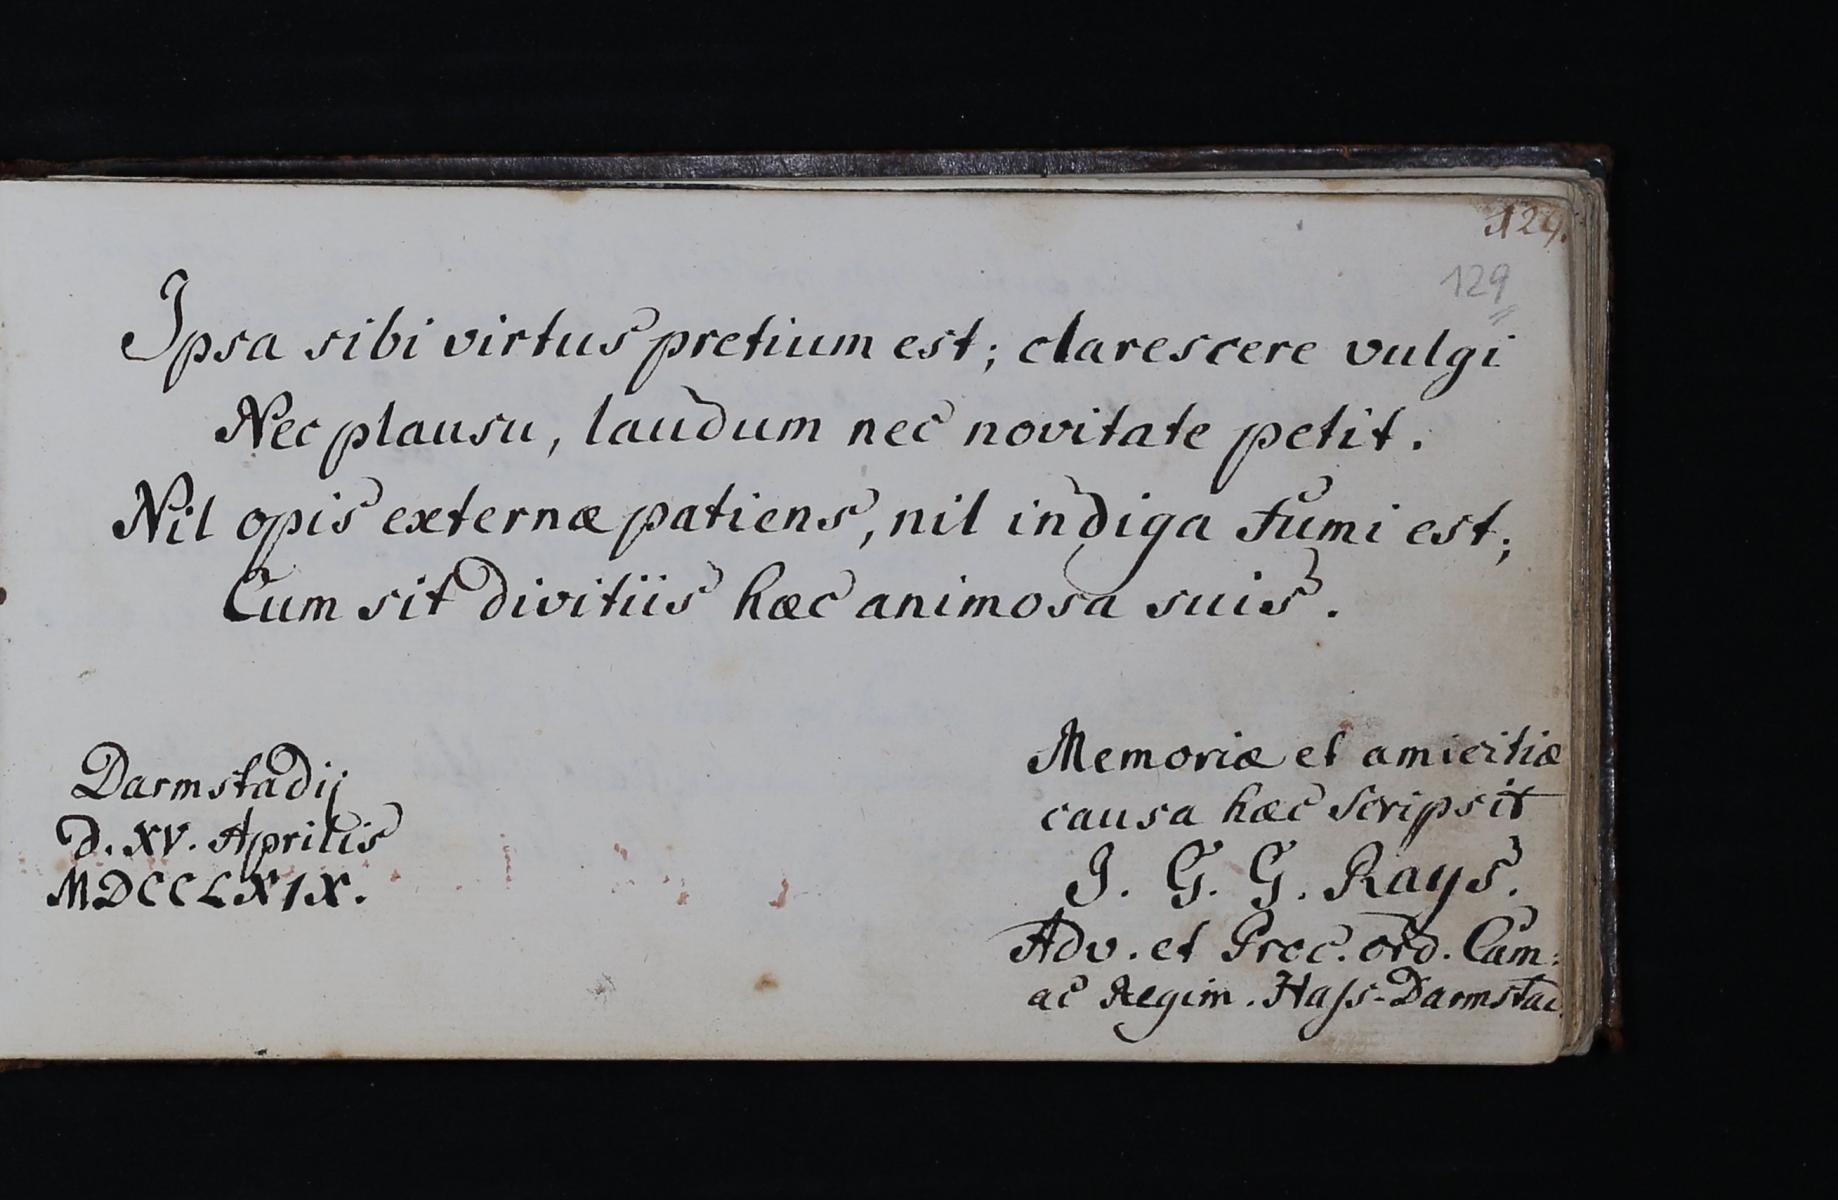 129.
129
Ipsa sibi virtus pretium est; clarescere vulgi
Nec plausu, laudum nec novitate petit.
Nil opis externæ patiens, nil indiga fumi est;
Cum sit divitiis hæc animosa suis.
Darmstadij
d. XV. Aprilis
MDCCLXIX.
Memoriæ et amicitiæ
causa hæc scripsit
J. G. G. Rays.
Adv. et Proc. ord. Cam:
ac Regim. Hass-Darmstad.